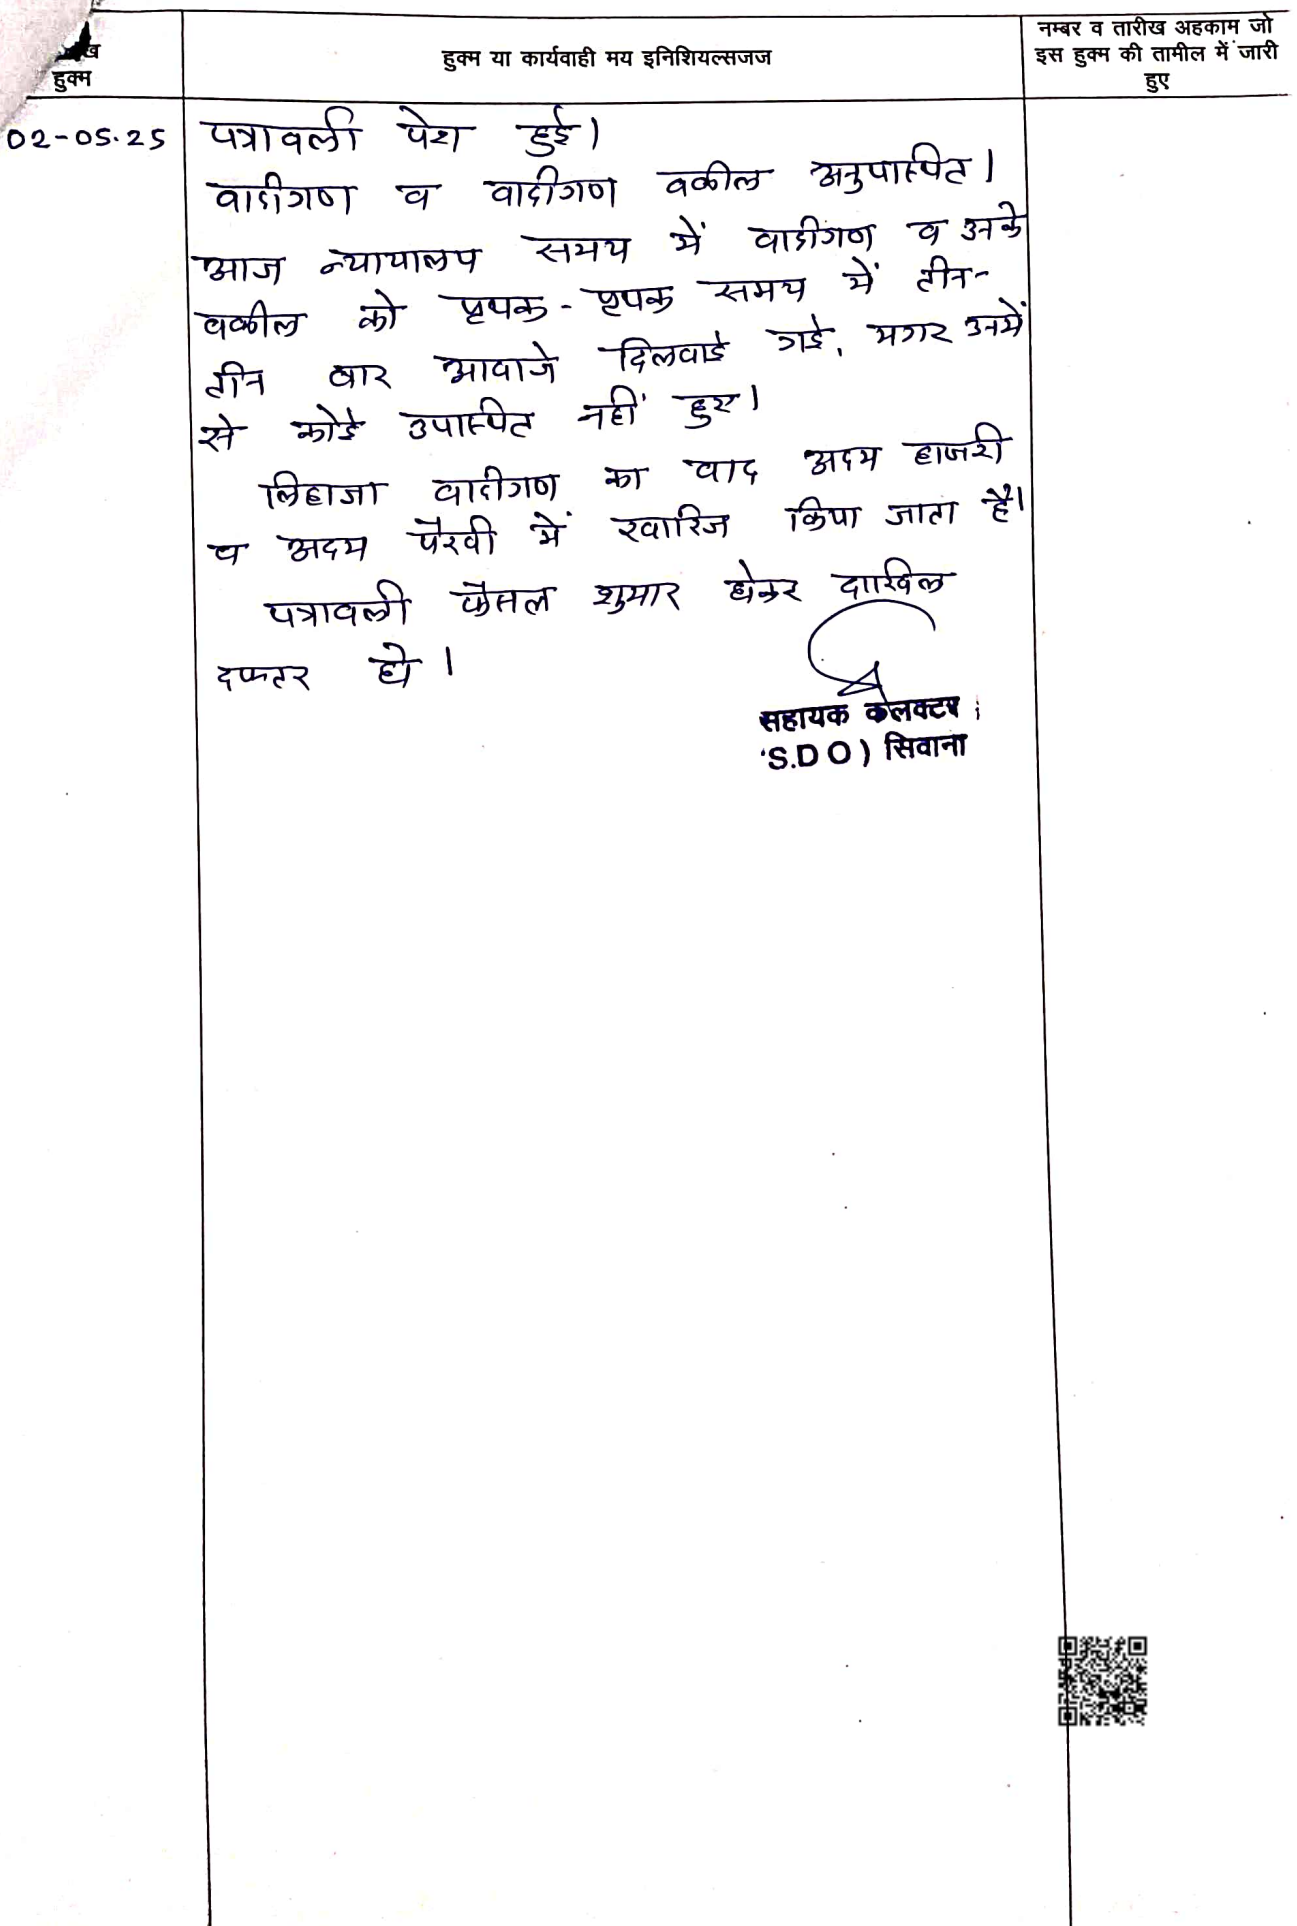 हुक्म
हुक्म या कार्यवाही मय इनिशियल्सजज
नम्बर व तारीख अहकाम जो
इस हुक्म की तामील में जारी
हुए
02-05.25
पत्रावली पेश हुई।
वादीगण व वादीगण वकील अनुपस्थित।
आज न्यायालय समय में वादीगण व उनके
वकील को पृथक - पृथक समय में तीन-
तीन बार आवाजे दिलवाई गई, मगर उनमें
से कोई उपस्थित नहीं हुए।
लिहाजा वादीगण का वाद अदम हाजरी
व अदम पैरवी में खारिज किया जाता है।
पत्रावली फैसल शुमार होकर दाखिल
दफ्तर हो।
सहायक कलक्टर
S.D O) सिवाना